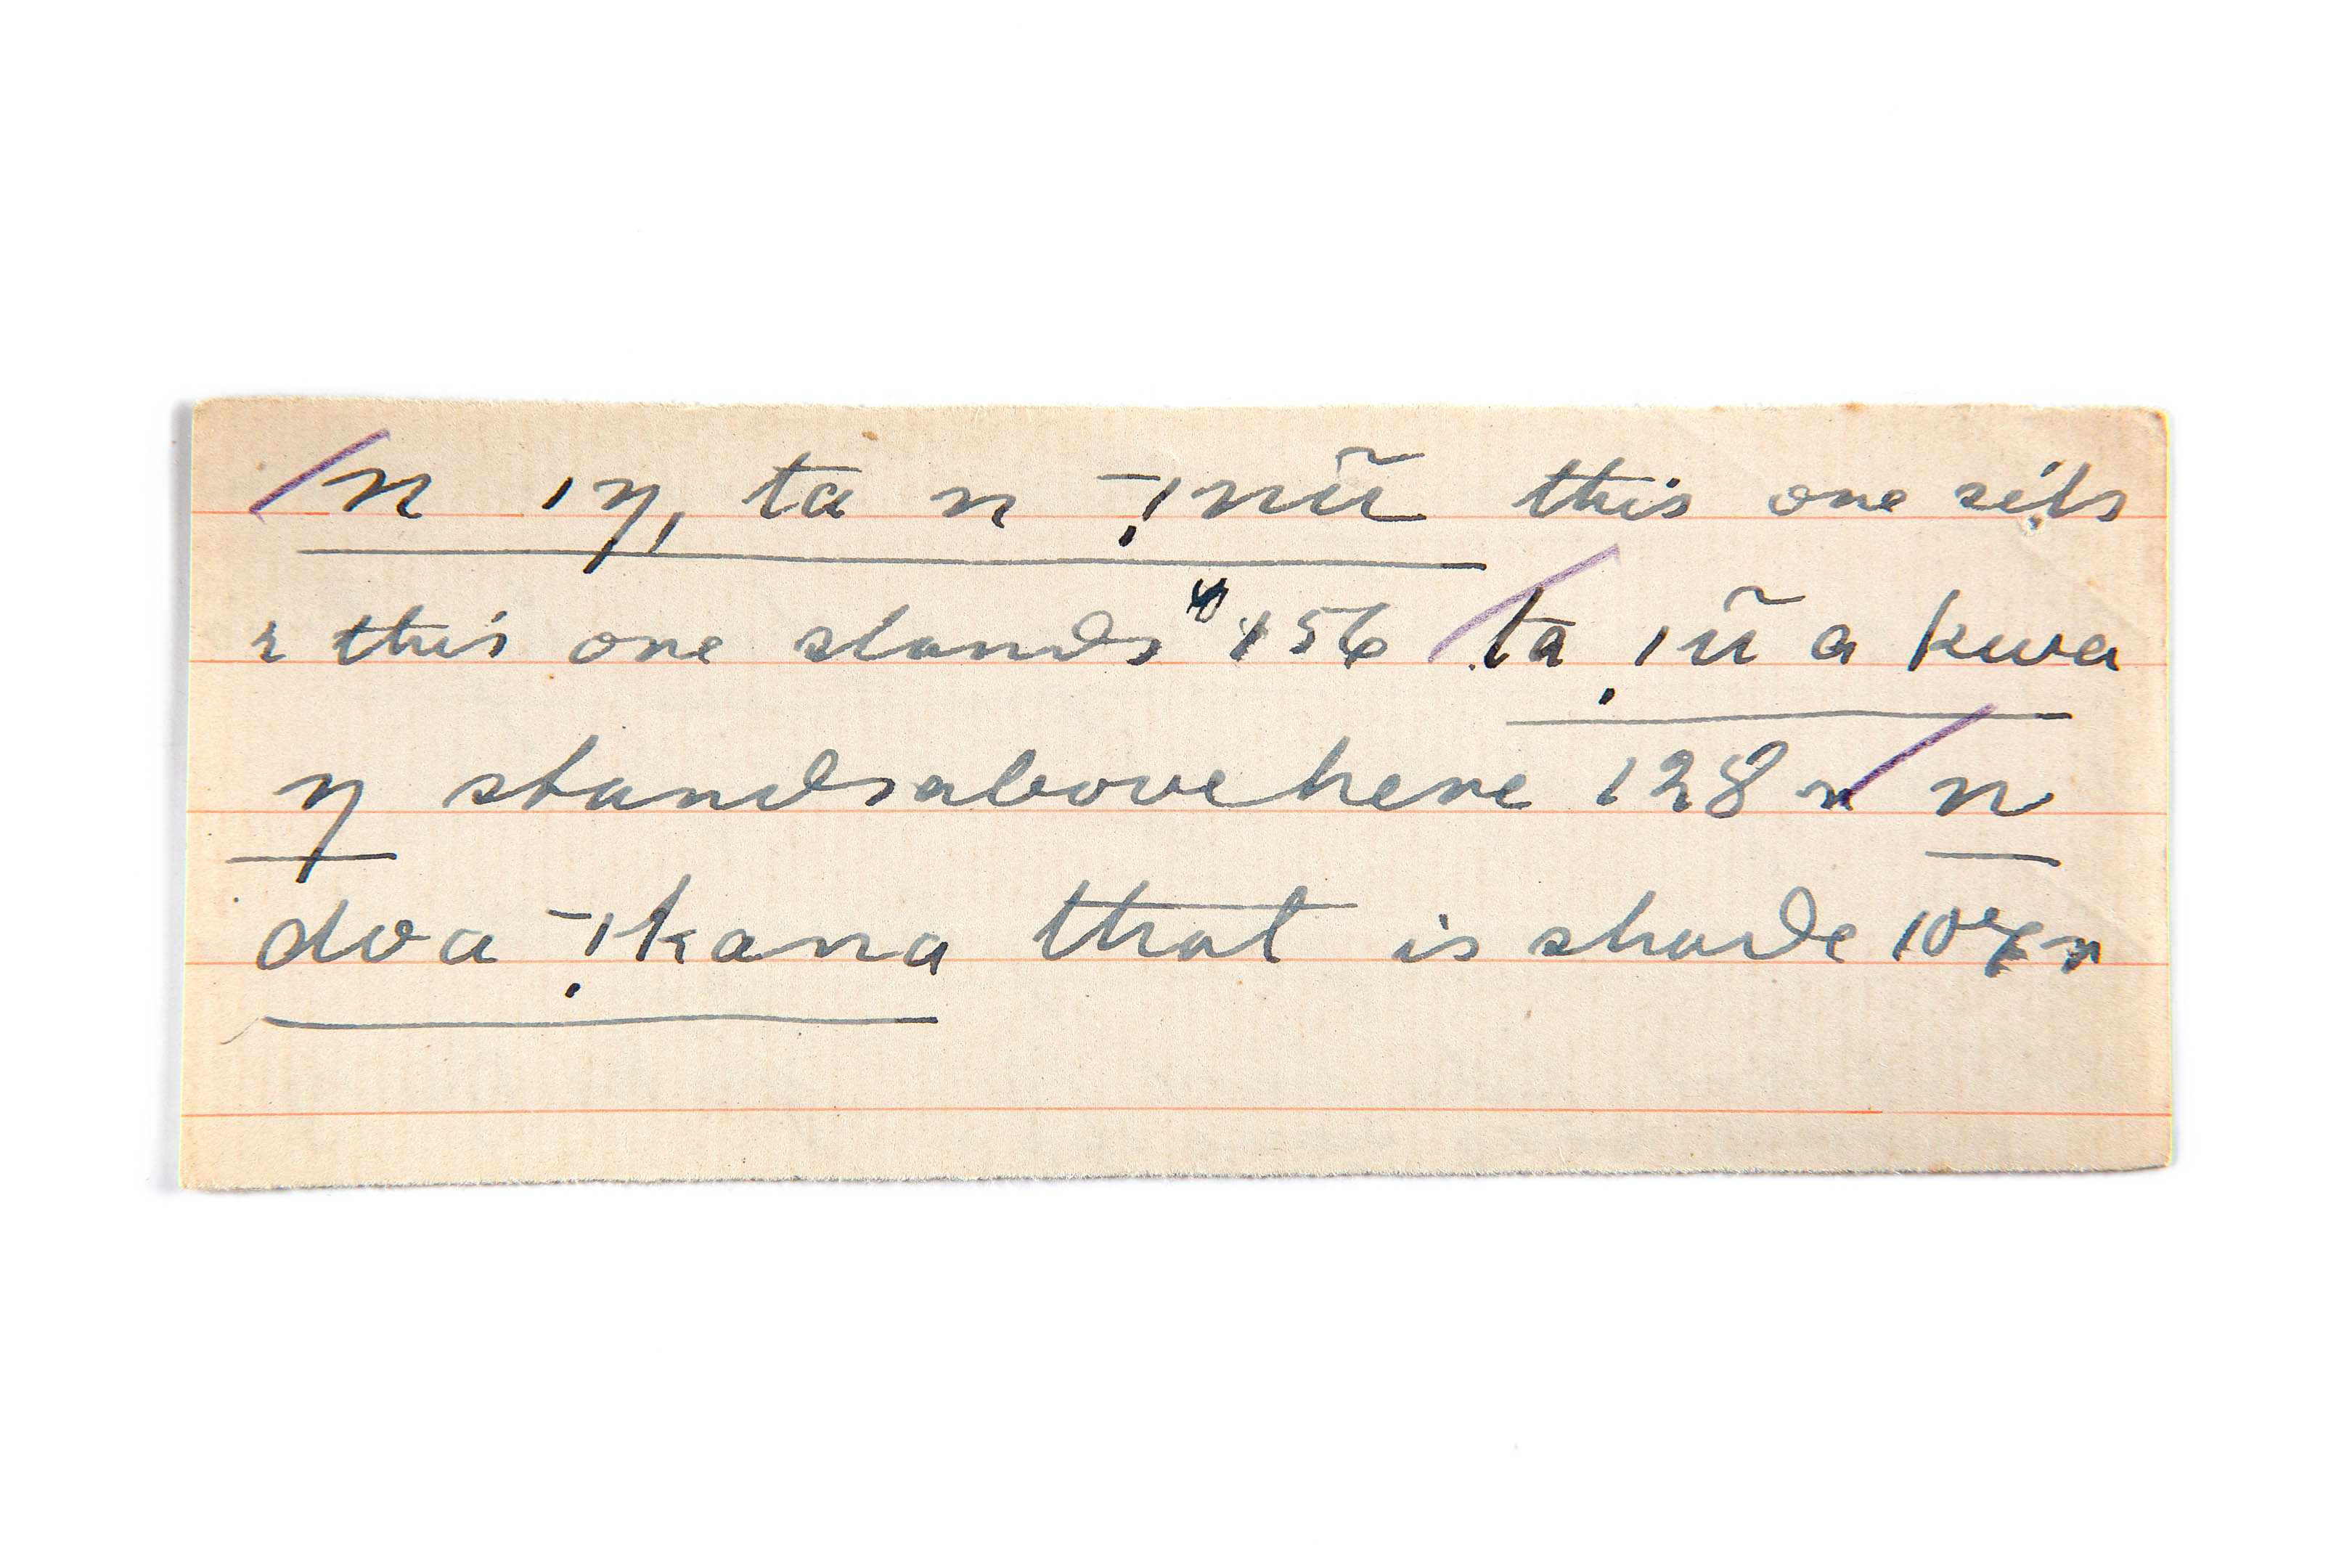 n ıŋ, ta n –ịnũ this one sits
& this one stands 156 ta ı̣ũ a kwa
ŋ stands above here 128 n n
dva –ịkana that is shade 10